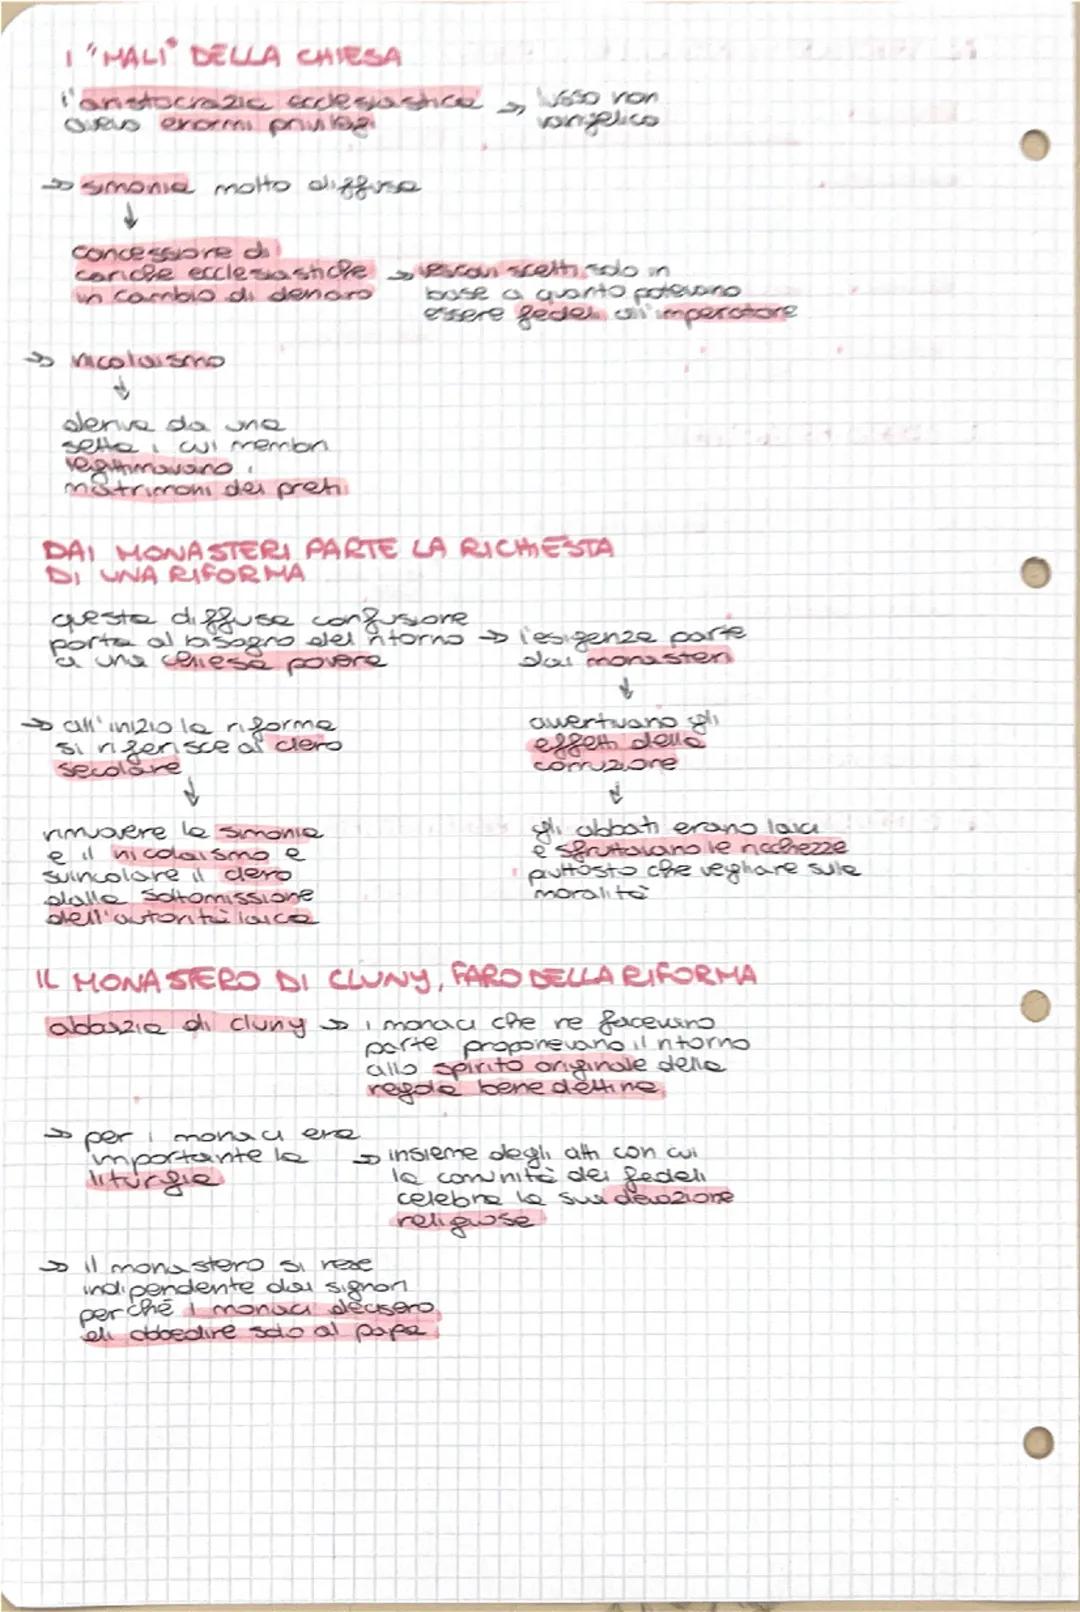 I "MALI" DELLA CHIESA
l'aristocrazia ecclesiastica → lusso non
aveva enormi privilegi vangelico
→ simonia molto diffusa
↓
concessione di
cariche ecclesiastiche → vescovi scelti solo in
in cambio di denaro base a quanto potevano
essere fedeli all'imperatore
→ nicolaismo
↓
deriva da una
setta i cui membri
legittimavano i
matrimoni dei preti
DAI MONASTERI PARTE LA RICHIESTA
DI UNA RIFORMA
questa diffusa confusione
porta al bisogno del ritorno → l'esigenza parte
a una chiesa povera dai monasteri
↓
→ all'inizio la riforma
si riferisce al clero
secolare
↓
rimuovere la simonia
e il nicolaismo e
svincolare il clero
dalla sottomissione
dell'autorità laica
avvertivano gli
effetti della
corruzione
↓
gli abbati erano laici
e sfruttavano le ricchezze
piuttosto che vegliare sulla
moralità
IL MONASTERO DI CLUNY, FARO DELLA RIFORMA
abbazia di cluny → i monaci che ne facevano
parte proponevano il ritorno
allo spirito originale della
regola benedettina
→ per i monaci era
importante la
liturgia
→ insieme degli atti con cui
la comunità dei fedeli
celebra la sua devozione
religiosa
→ il monastero si rese
indipendente dai signori
perché i monaci decisero
di obbedire solo al papa